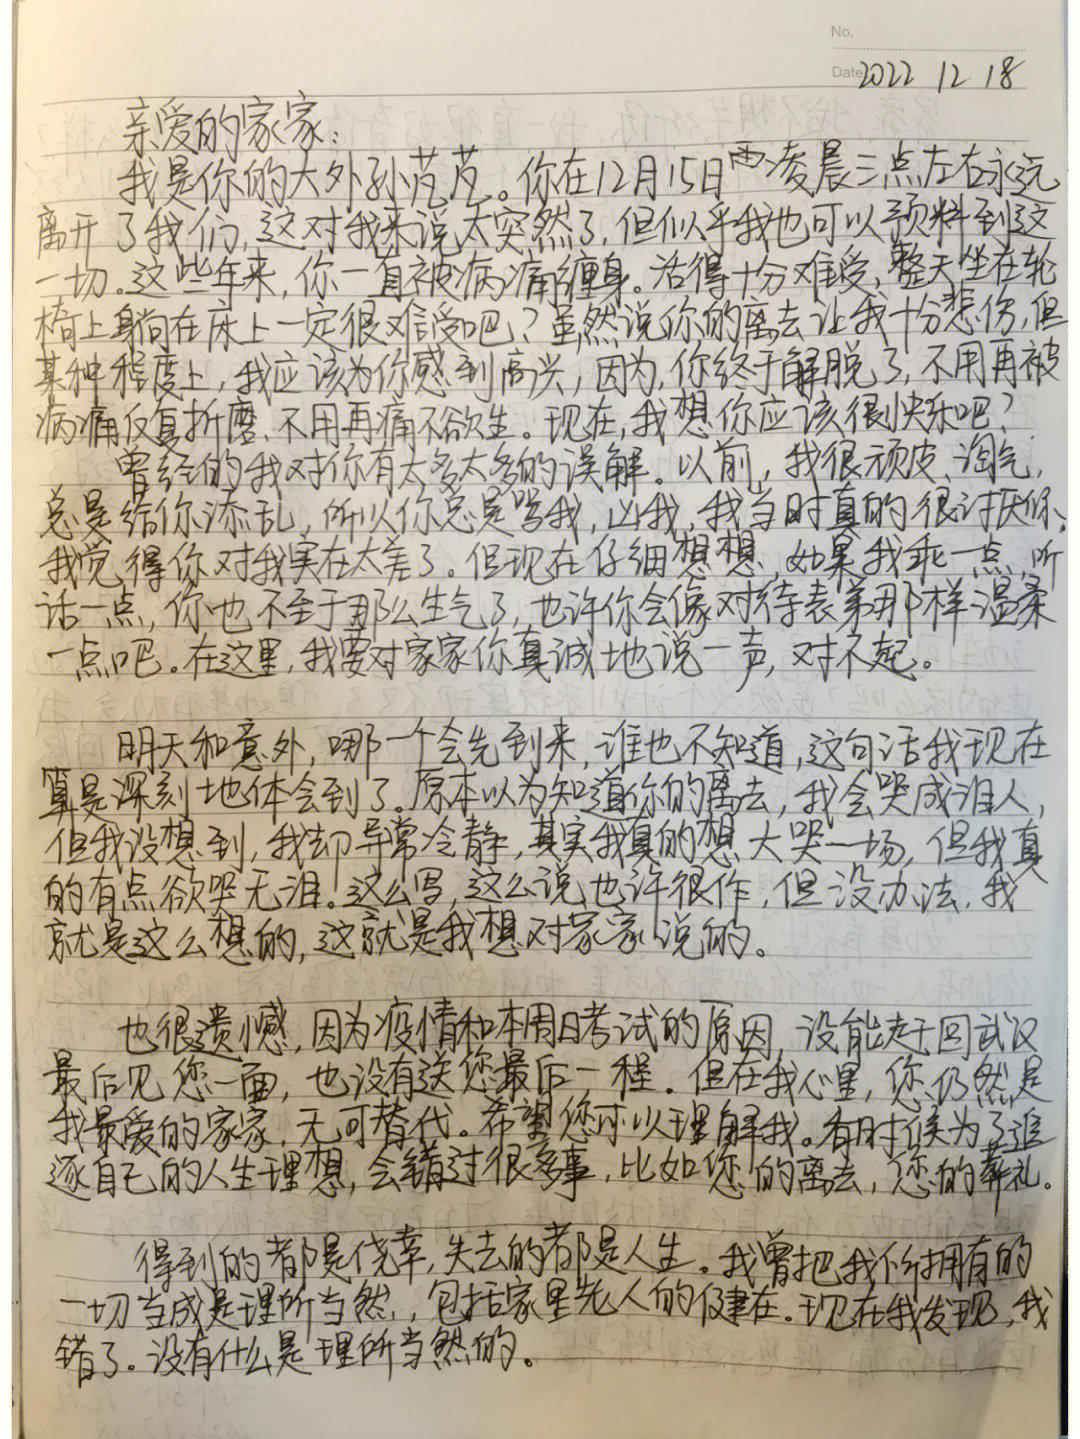 No.
Date 2022 12 18
亲爱的家家：
我是你的大外孙芃芃。你在12月15日凌晨三点左右永远
离开了我们，这对我来说太突然了，但似乎我也可以预料到这
一切。这些年来，你一直被病痛缠身。活得十分难受，整天坐在轮
椅上躺在床上一定很难受吧？虽然说你的离去让我十分悲伤，但
某种程度上，我应该为你感到高兴，因为，你终于解脱了，不用再被
病痛反复折磨、不用再痛不欲生。现在，我想你应该很快乐吧？
曾经的我对你有太多太多的误解。以前，我很顽皮、淘气，
总是给你添乱，所以你总是骂我，凶我，我当时真的很讨厌你，
我觉得你对我实在太差了。但现在仔细想想，如果我乖一点，听
话一点，你也不至于那么生气了，也许你会像对待表弟那样温柔
一点吧。在这里，我要对家家你真诚地说一声，对不起。
明天和意外，哪一个会先到来，谁也不知道，这句话我现在
算是深刻地体会到了。原本以为知道你的离去，我会哭成泪人，
但我没想到，我却异常冷静，其实我真的想大哭一场，但我真
的有点欲哭无泪。这么写，这么说也许很作，但没办法，我
就是这么想的，这就是我想对家家说的。
也很遗憾，因为疫情和本周日考试的原因，没能赶回武汉
最后见您一面，也没有送您最后一程。但在我心里，您仍然是
我最爱的家家，无可替代。希望您可以理解我。有时候为了追
逐自己的人生理想，会错过很多事，比如您的离去，您的葬礼。
得到的都是侥幸，失去的都是人生。我曾把我所拥有的
一切当成是理所当然，，包括家里老人的健在。现在我发现，我
错了。没有什么是理所当然的。